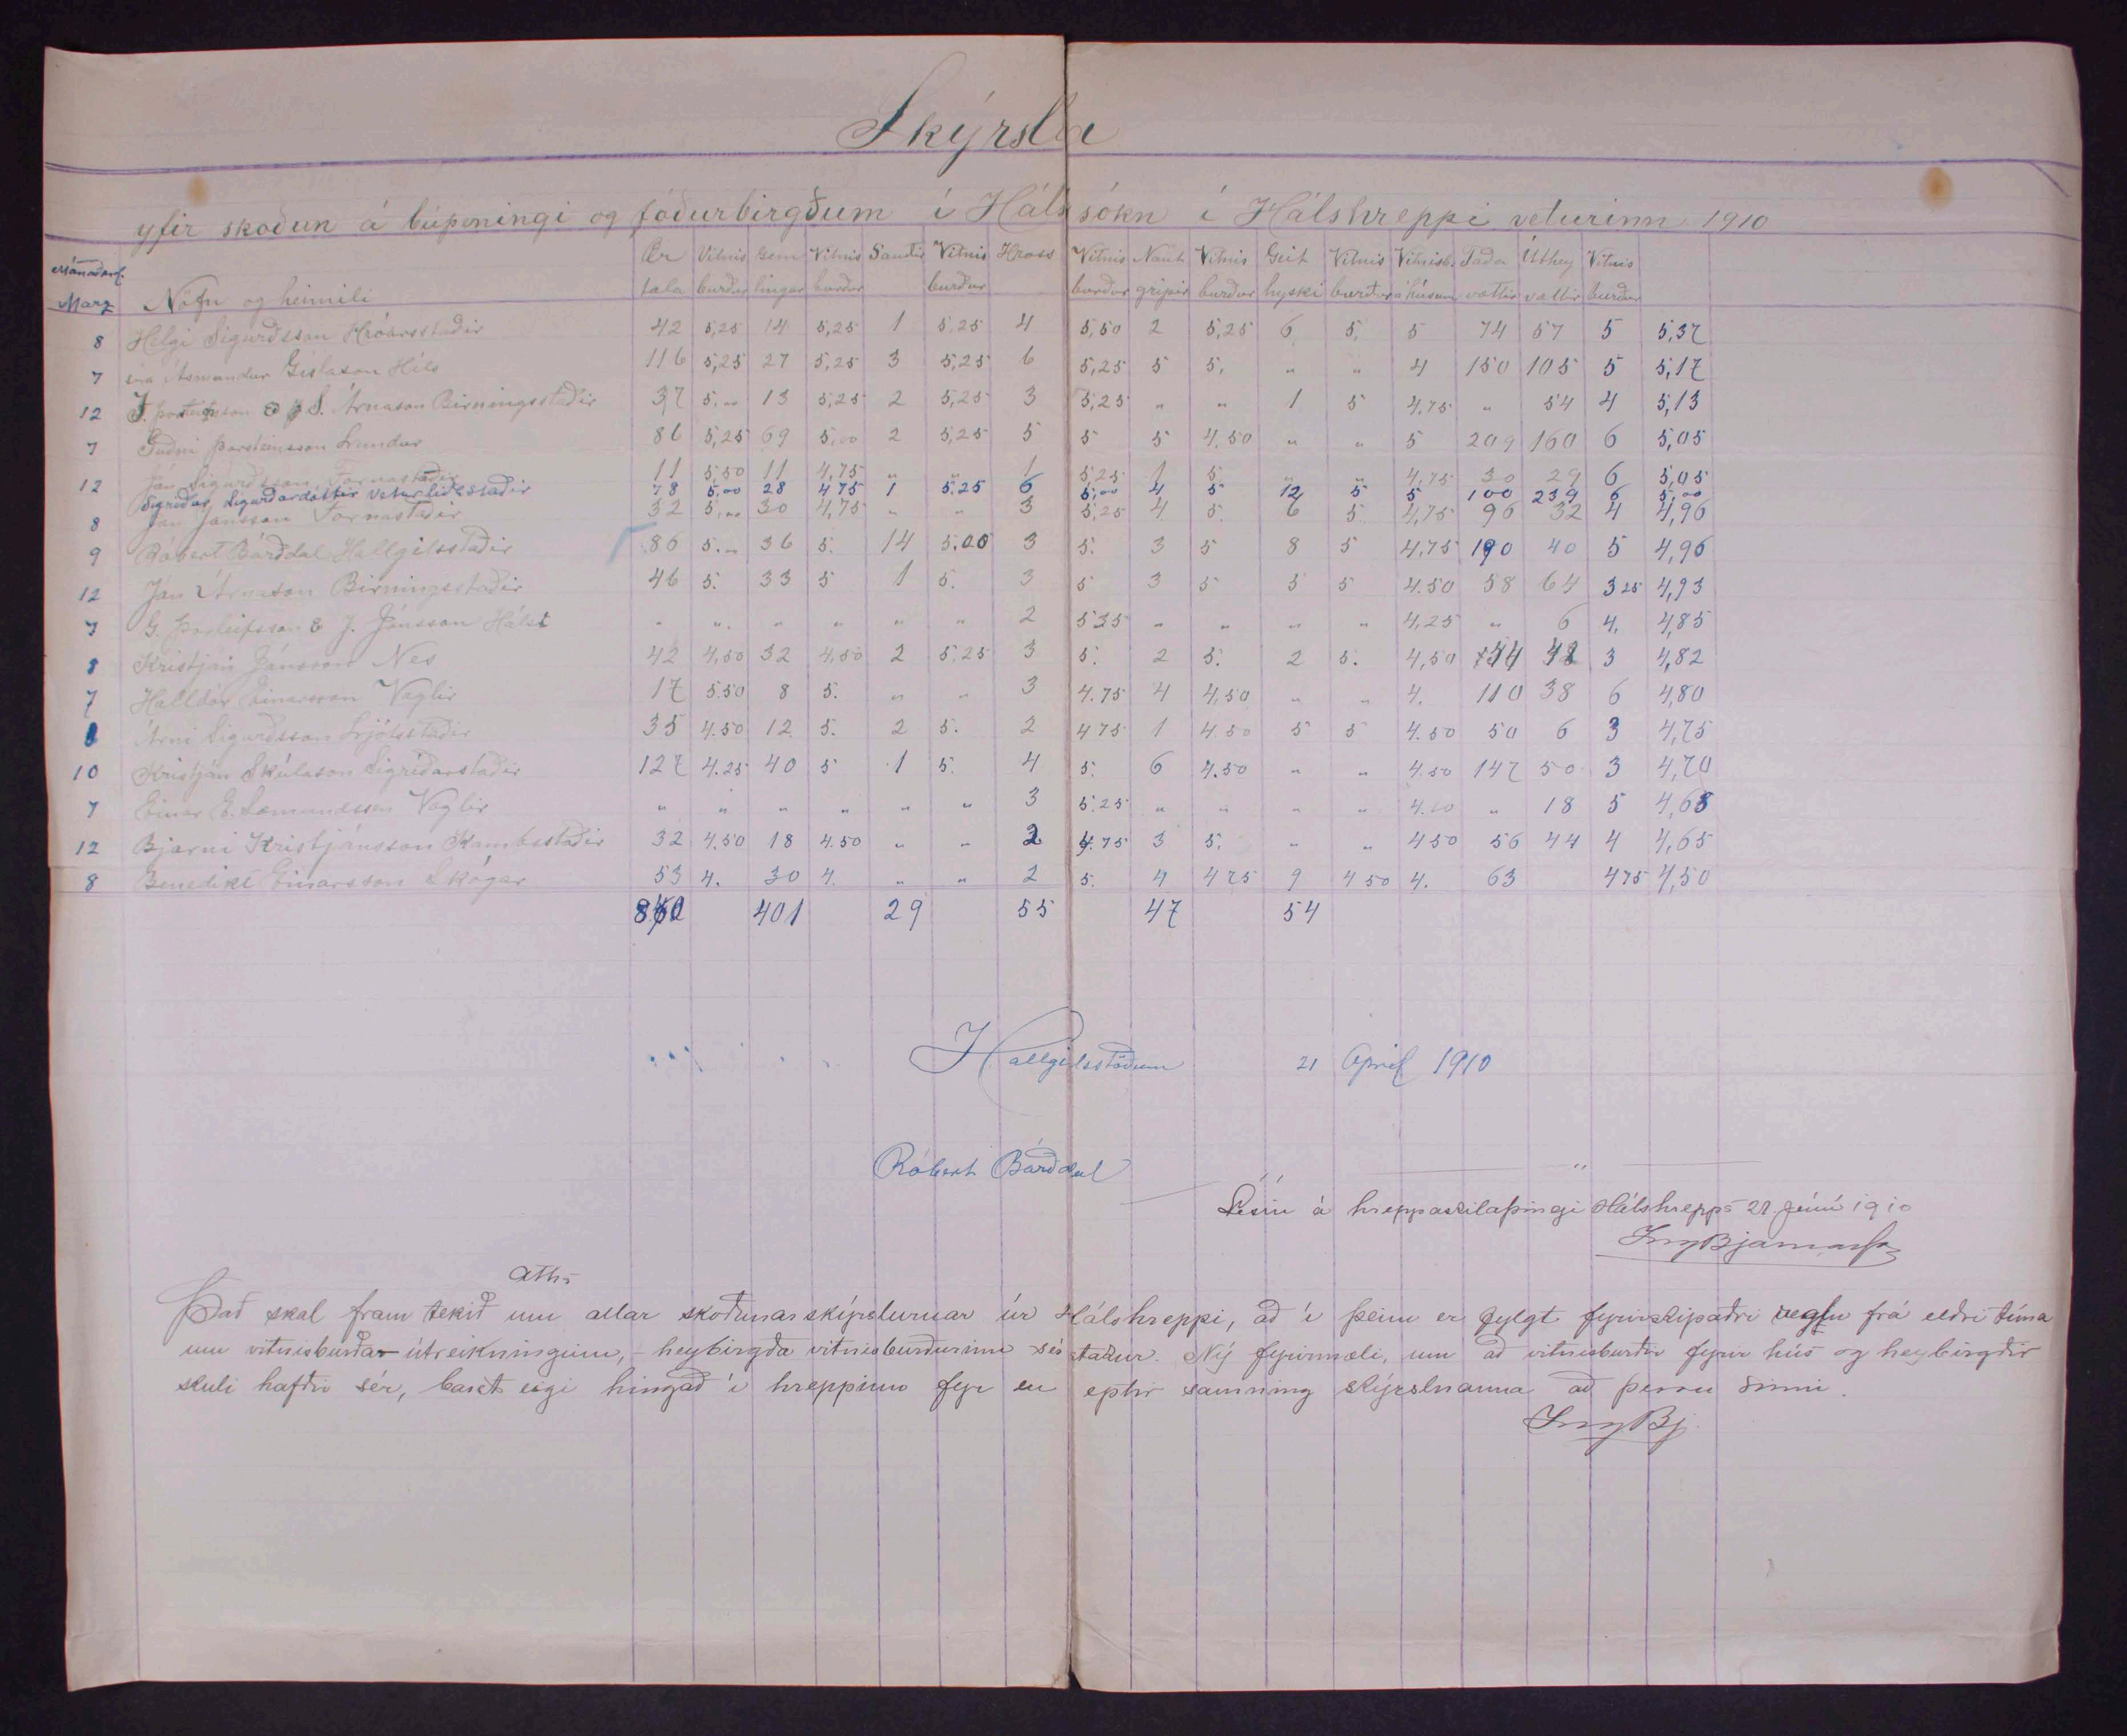 Skýrsla
yfir skoðun á búpeningi og fóðurbirgðum í Hálssókn í Hálshreppi veturinn 1910
Mánaðard. Ær Vitnis Gem Vitnis Sauðir Vitnis Hross Vitnis Naut Vitnis Geit Vitnis Vitnisb. Taða Úthey Vitnis
Marz Nöfn og heimili tala burður lingar burður burður burður gripir burður hyski burður á húsum vættir vættir burður
8 Helgi Sigurðsson Hróarsstaðir 42 5,25 14 5,25 1 5,25 4 5,50 2 5,25 6 5, 5 74 57 5 5,37
7 séra Ásmundur Gíslason Háls 116 5,25 27 5,25 3 5,25 6 5,25 5 5, " " 4 150 105 5 5,17
12 & S. Árnason Birningsstaðir 37 5," 13 5,25 2 5,25 3 5,25 " " 1 5 4,75 " 54 4 5,13
7 Guðni Þorsteinsson Lundur 86 5,25 69 5,00 2 5,25 5 5 5 4.50 " " 5 209 160 6 5,05
12 Jón Sigurðsson Fornastaðir 11 5,50 11 4,75 " " 1 5,25 1 5 " " 4,75 30 29 6 5,05
Sigríður Sigurðardóttir Veturliðastaðir 78 5,00 28 475 1 5.25 6 5,00 4 5 12 5 5 100 239 6 5,00
8 Jón Jónsson Fornastaðir 32 5," 30 4,75 " " 3 5,25 4 5. 6 5 4,75 96 32 4 4,96
9 Róbert Bárðdal Hallgilsstaðir 86 5." 36 5. 14 5.00 3 5. 3 5 8 5 4,75 190 40 5 4,96
12 Jón Árnason Birningsstaðir 46 5. 33 5 1 5. 3 5 3 5 5 5 4.50 58 64 3 25 4,93
7 G. Þorleifsson & J. Jónsson Háls " " " " " " 2 535 " " " " 4,25 " 6 4, 4,85
8 Kristján Jónsson Nes 42 4,50 32 4,50 2 5,25 3 5. 2 5. 2 5. 4,50 44 48 3 4,82
7 Halldór Einarsson Vaglir 17 5.50 8 5. " " 3 4.75 4 4,50 " " 4. 110 38 6 4,80
8 Árni Sigurðsson Ljótsstaðir 35 4.50 12 5. 2 5. 2 475 1 4.50 5 5 4.50 50 6 3 4,75
10 Kristján Skúlason Sigríðarstaðir 127 4.25 40 5 1 5. 4 5. 6 4.50 " " 4.50 147 50 3 4,70
7 Einar E. Sæmundsen Vaglir " " " " " " 3 5.25 " " " " 4.10 " 18 5 4,68
12 Bjarni Kristjánsson Kambsstaðir 32 4,50 18 4.50 " " 2 4.75 3 5, " " 450 56 44 4 4,65
8 Benedikt Einarsson Skógar 53 4. 30 4. " " 2 5. 4 475 9 4 50 4. 63 475 4,50
840 401 29 55 47 54
Hallgilsstöðum 21 Apríl 1910
Róbert Bárðdal
Lesin á hreppaskilaþingi Hálshrepps 27. júní 1910
IngBjarnarson
Aths
Það skal fram tekið um allar skoðunarskýrslurnar úr Hálshreppi, að í þeim er fylgt fyrirskipaðri reglu frá eldri tíma
um vitnisburðar útreikninginn, - heybirgða vitnisburðurinn sér staður. Ný fyrirmæli, um að vitnisburðir fyrir hús og heybirgðir
skuli hafðir sér, barst eigi hingað í hreppinn fyr en eptir samning skýrslnanna að þessu sinni.
IngBj.